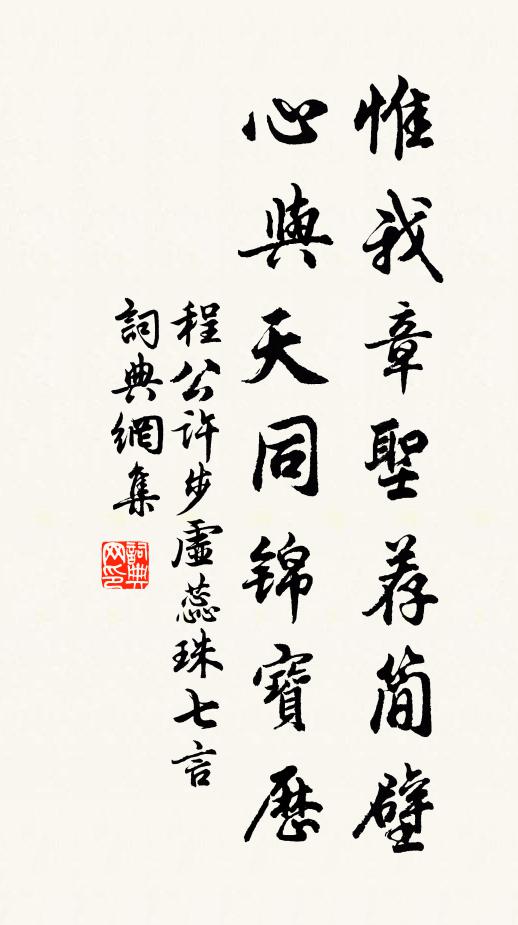 惟我章聖荐简壁
心與天同锦寶歷
程公許步虛蕊珠七言
詞典網集
詞典网印